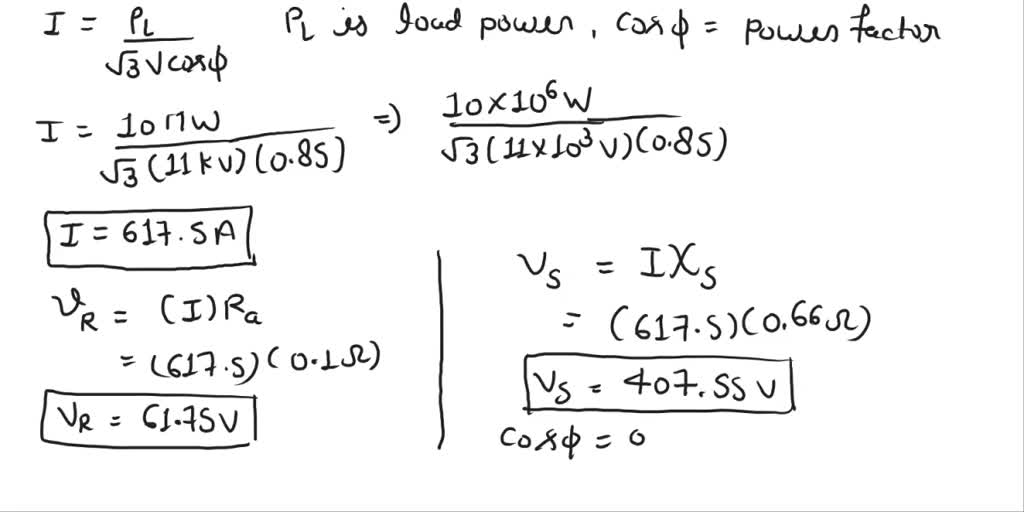 I = P_L / √3 V cosϕ   P_L is load power, cosϕ = Power factor
I = 10 MW / √3 (11 kV)(0.85) ⇒ 10×10⁶ W / √3 (11×10³ V)(0.85)
I = 617.5A
V_R = (I) R_a
= (617.5)(0.1Ω)
V_R = 61.75V
V_S = I X_S
= (617.5)(0.66Ω)
V_S = 407.55 V
cosϕ = 0